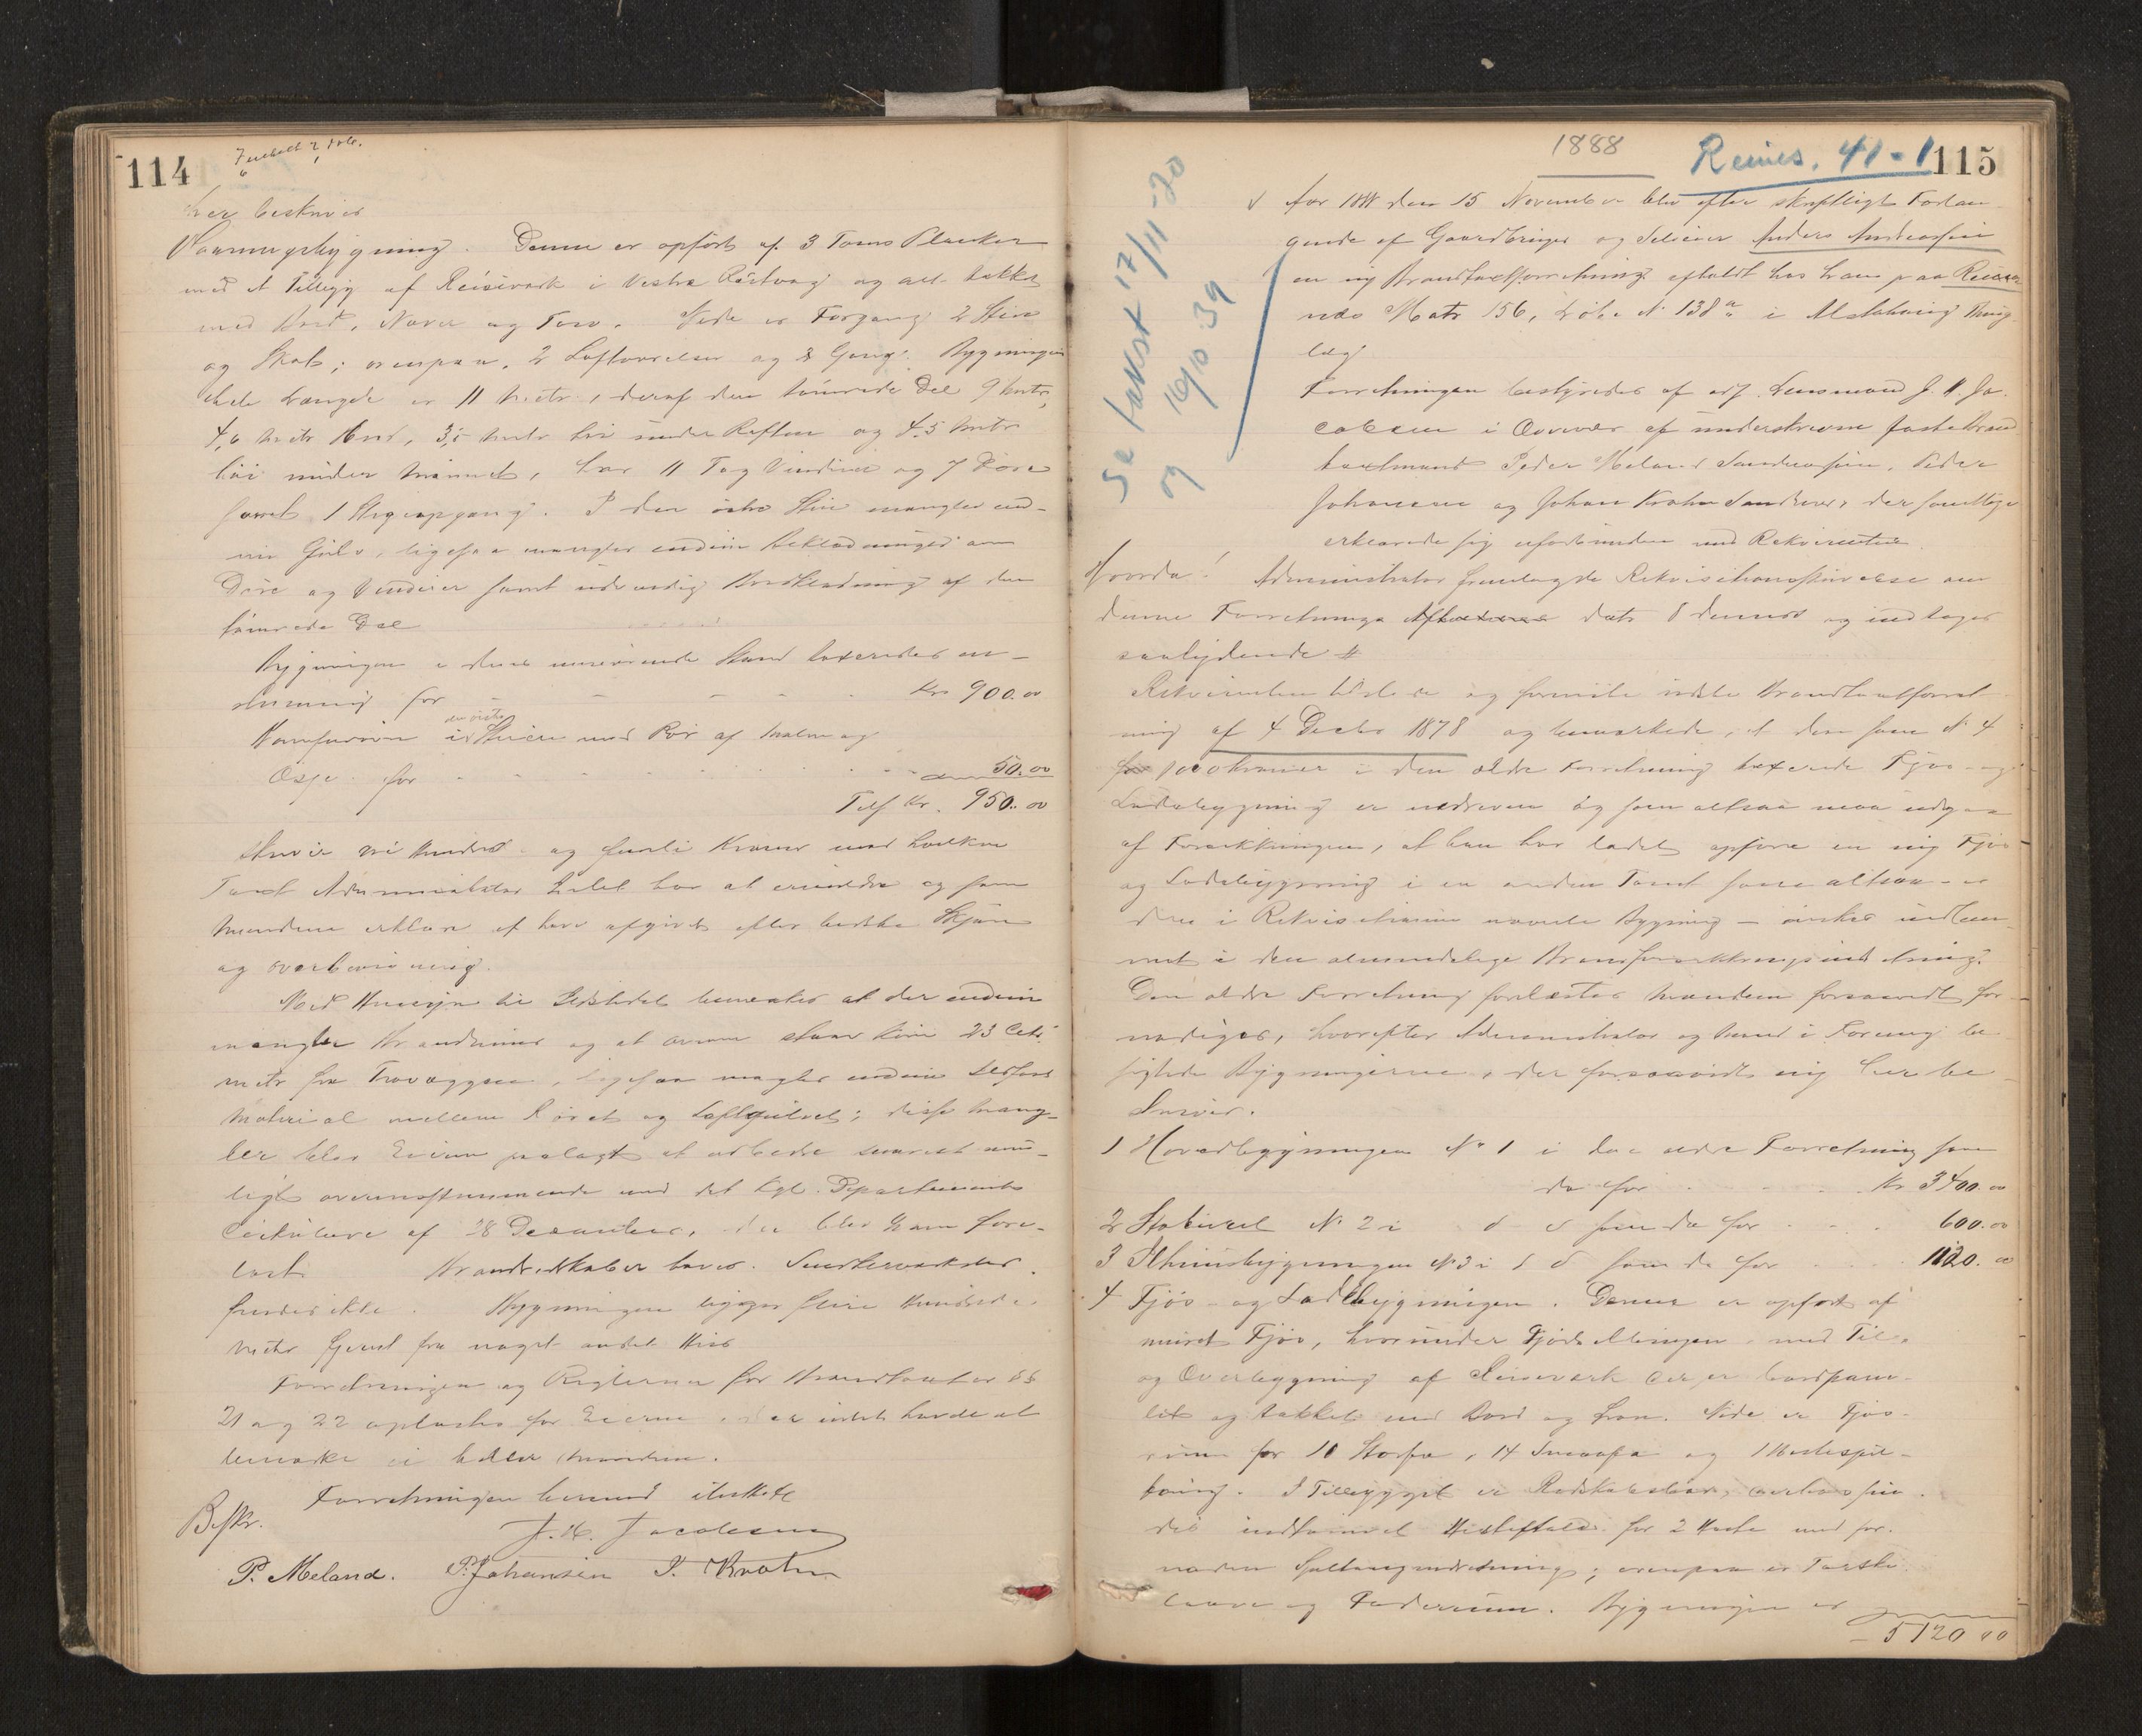 114
her beskrives
Vaaningsbygning. Denne er opført af 3 Toms Planker
med et Tillæg af Reisverk i Vestre og alt tækket
med Bord, Næver og Torv. Nede er Forgang 2 Stuer
og Skab; ovenpaa, 2 Loftværelser og 2 Gange. Bygningens
hele Længde er 11 metr, deraf den tømrede Del 9 metr,
4,6 metr bred, 3,5 metr høi under Raften og 4,5 metr
høi under Mønnet, har 11 Fag Vinduer og 7 Døre
samt 1 Stigeopgang. I den østre Stue mangler end-
nu Gulv, ligesaa mangler endnu Beklædninger om
Døre og Vinduer samt udvendig Bordklædning af den
tømrede Del
Bygningen i dens nuværende Stand taxeredes en-
stemmig for Kr 900.00
Kamfuovn i den østre Stuen med Rør af Malm og
for 50.00
Tils Kr. 950.00
skriver ni Hundrede og femti Kroner mod hvilken
Taxt Administrator Intet har at erindre og som
Mændene erklære at have afgivet efter bedste Skjøn
og overbevisning.
Ved Hensyn til Ildstedet bemerkes at der endnu
mangler Brandmur og at ovnen staar kun 23 Cent.
metr fra Trævæggen, ligesaa mangler endnu Ildfast
Material mellem Røret og Loftgulvet; disse Mang-
ler blev Eieren paalagt at udbedre snarest mu-
ligt overensstemmende med det Kgl. Departements
Cirkulære af 28 December, der blev ham fore-
læst. Brandredskaber haves. Snedkerværksted
findes ikke. Bygningen ligger flere Hundrede
metr fjernt fra noget andet Hus
Forretningen og Reglerne for Brandtaxter §§
21 og 22 oplæstes for Eieren, der intet havde at
bemerke ei heller Mændene.
Forretningen hermed sluttet
Beskr.
J. H. Jacobsen
P. Meland. P. Johansen J. Krohn
1888
Reines. 41-1
115
Se takst 17/11-20
og 16/10 39
Aar 1888 den 15 November blev efter skriftligt Forlan
gende af Gaardbruger og Selveier Anders Andreassen
en ny Brandtaxtforretning afholdt hos ham paa Reines
Matr 156, Løbe No 138a i Alstahaug Thing
lag
Forretningen bestyredes af Lensmand J. H. Ja-
cobsen i Overvær af understrevne faste Brand
taxtmænd Peder Meland Sandnessjøen, Peder
Johansen og Johan Krohn Sandnes, der samtlige
erklærede sig uforbunden med Rekvirenten.
Hvorda! Administrator fremlagde Rekvisitionsskrivelse om
denne Forretnings datr 8 dennes og indtages
saalydende #
Rekvirenten tilstede og fremlagde sidste Brandtaxtforret
ning af 4 Decbr 1878 og bemærkede, at den som No 4
for Kroner i den ældre Forretning taxerede Fjøs og
Ladebygning er nedreven og som altsaa maa udgaa
af Forsikkringen, at han har ladet opføre en ny Fjøs
og Ladebygning i en anden Tomt som altsaa er
den i Rekvisitionen nævnte Bygning — ønskes indlem
met i den almindelige Brandforsikkringsindretning.
Den ældre Forretning forelæstes Mændene forsaavidt for
nødiges, hvorefter Administrator og Mænd i Forening be
sigtede Bygningerne, der forsaavidt ny her be
skrives.
1 Hovedbygningen No 1 i den ældre Forretning som
da for Kr 3400.00
2 Staburet No 2 i d d som da for 600.00
3 Ildhusbygningen No 3 i d d som da for 1120.00
4 Fjøs- og Ladebygningen. Denne er opført af
muret Fjøs, hvorunder Gjødselbingen med Til-
og Overbygning af Reisverk der er bordpane-
let og tækket med Bord og Torv. Nede er Fjøs-
rum for 10 Storfæ, 14 Smaafæ og 1 Hestespil-
taug. I Tillegget er Redskabsbod,
indtømret Hestestald for 2 Heste med for-
nøden indretning; ovenpaa er Tærske
laave og Foderrum. Bygningen er
5120 00